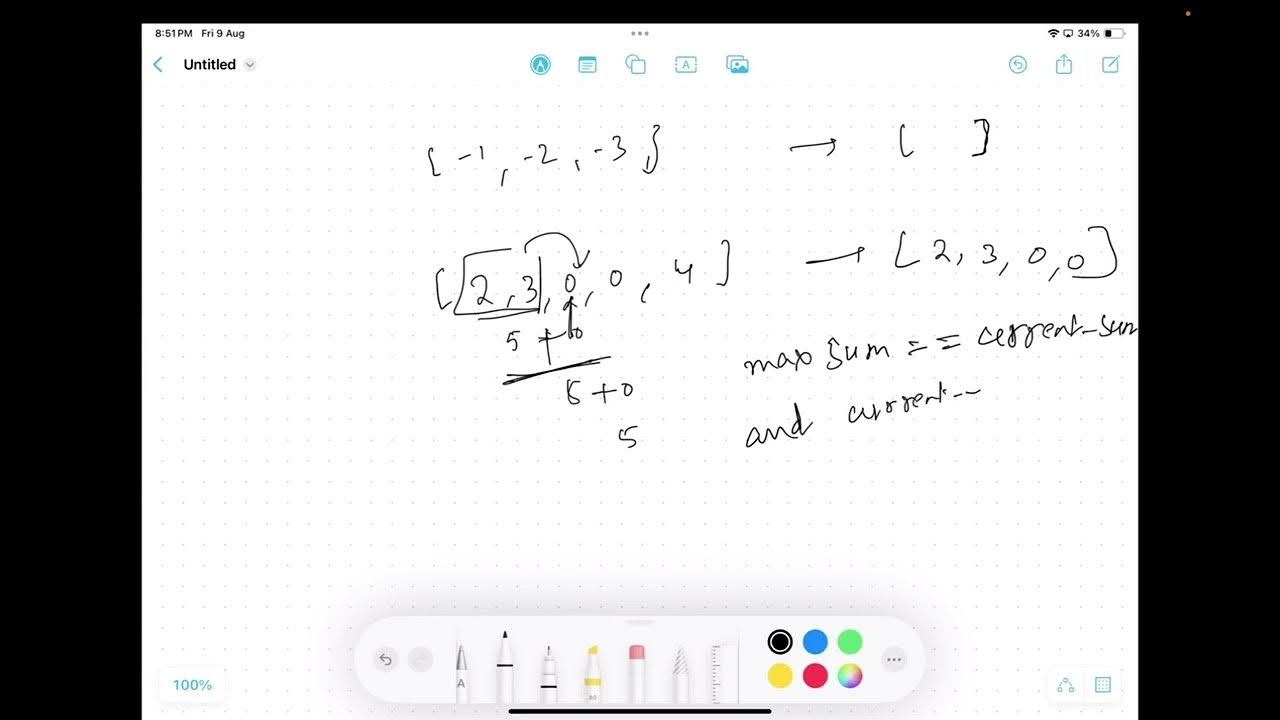 8:51 PM Fri 9 Aug 34%
Untitled
[ -1 , -2 , -3 , ] → [ ]
[ 2 , 3 , 0 , 0 , 4 ] → [ 2, 3, 0, 0 ]
5 + 0
5 + 0
5
max sum == current-sum
and current--
100%